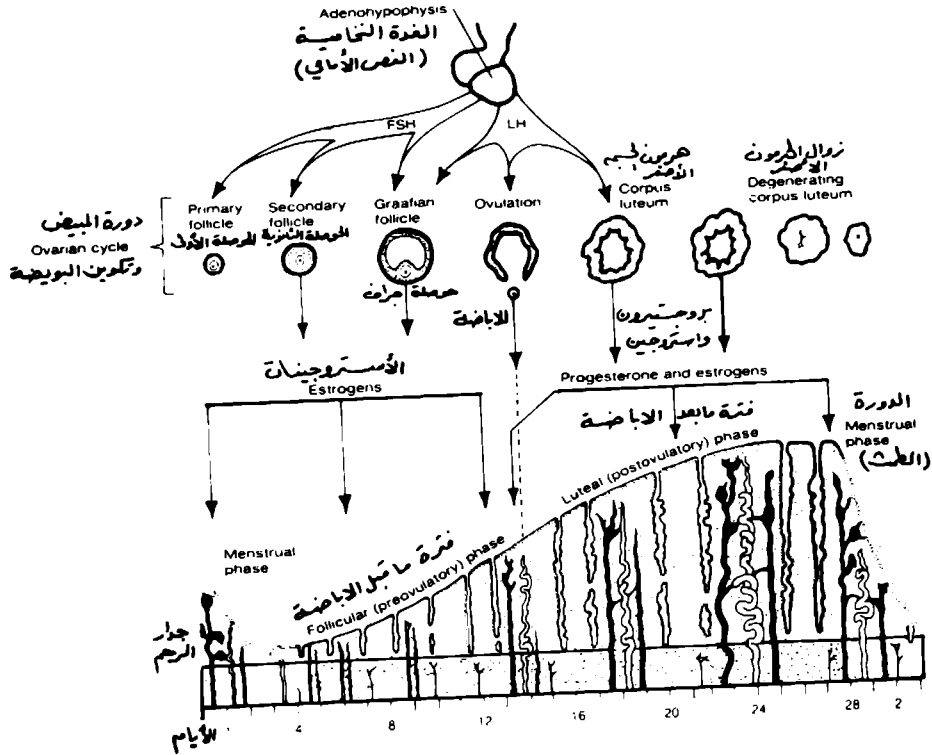 Adenohypophysis
الغدة النخامية
(الفص الأمامي)
FSH
LH
دورة المبيض
Ovarian cycle
وتكوين البويضة
Primary
follicle
الحوصلة الأولى
Secondary
follicle
الحوصلة الثانوية
Graafian
follicle
حوصلة جراف
Ovulation
للاباضة
هرمون الجسم
الأصفر
Corpus
luteum
زوال الهرمون
الأصفر
Degenerating
corpus luteum
بروجستيرون
واستروجين
الأستروجينات
Estrogens
Progesterone and estrogens
فترة ما بعد الاباضة
Luteal (postovulatory) phase
الدورة
Menstrual
phase
(الطمث)
Menstrual
phase
فترة ما قبل الاباضة
Follicular (preovulatory) phase
جدار
الرحم
4
8
12
16
20
24
28
2
الأيام